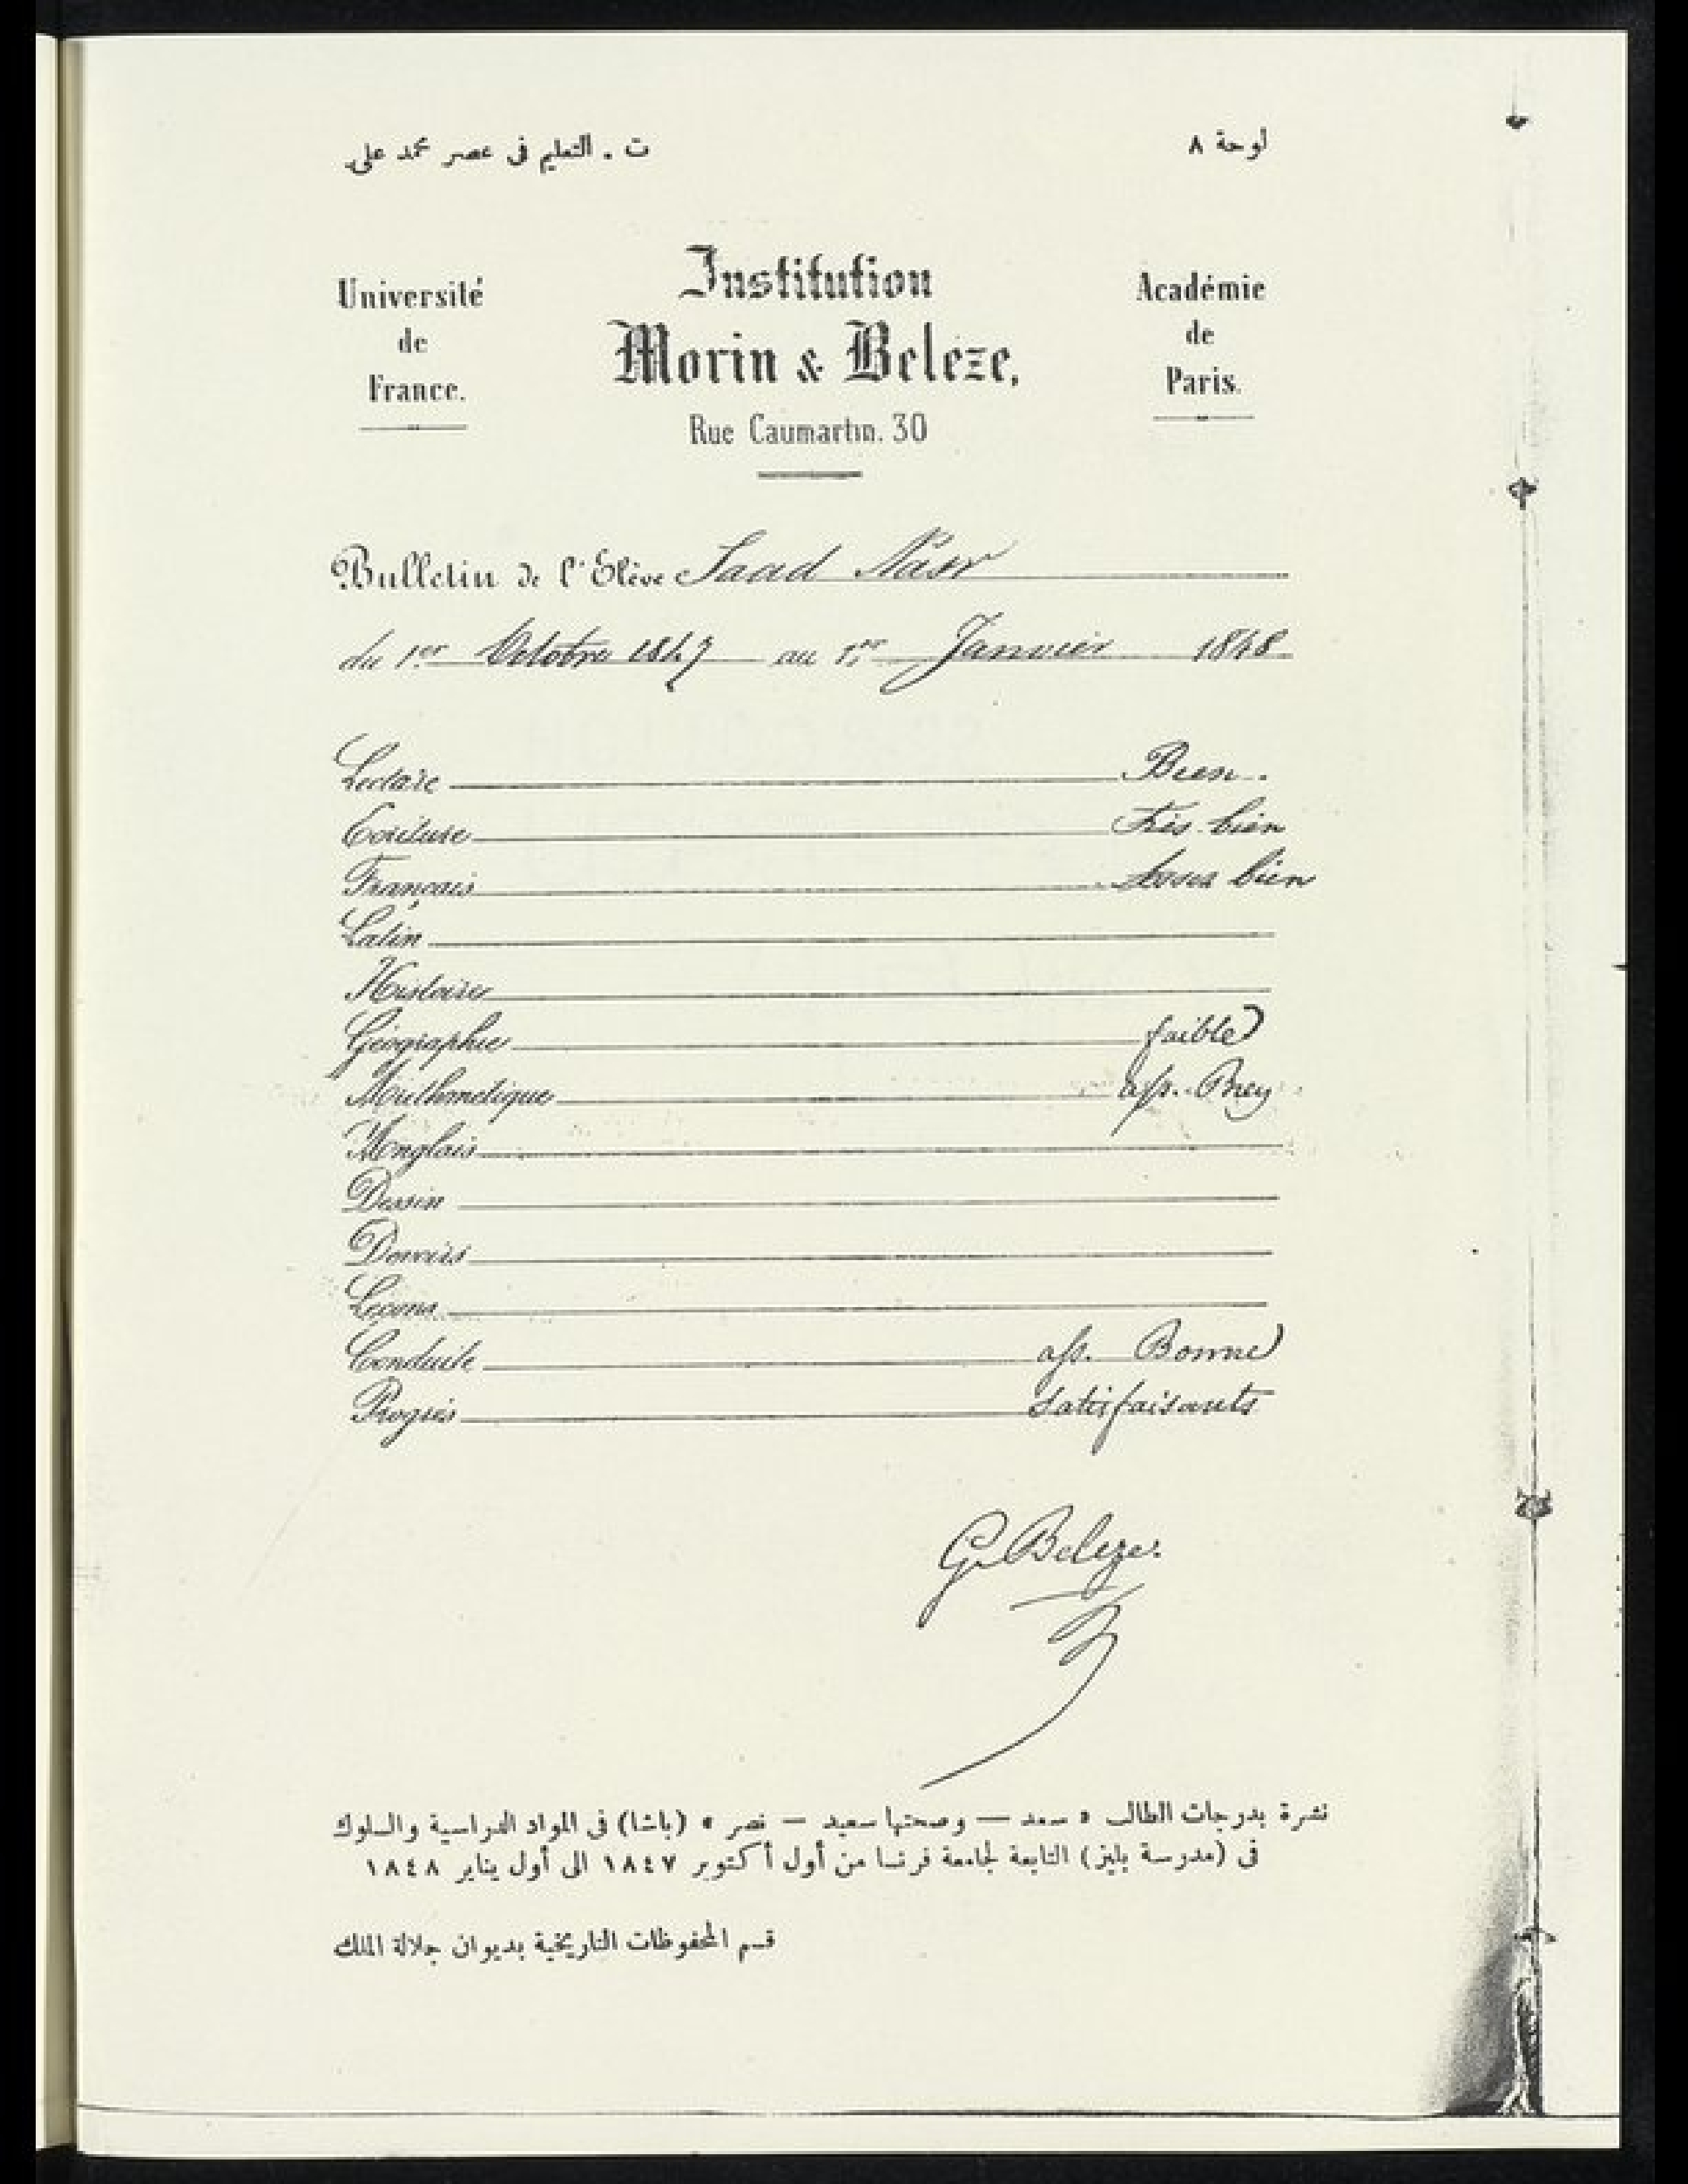 لوحة ٨
ت . التعليم فى عصر محمد على
Université
de
France.
Institution
Morin & Beleze,
Rue Caumartin. 30
Académie
de
Paris.
Bulletin de l'Elève Saad Näsr
du 1er Octobre 1847 au 1er Janvier 1848
Lecture Bien.
Ecriture Très bien
Français Assez bien
Latin
Histoire
Géographie faible
Arithmetique ass.
Anglais
Dessin
Devoirs
Leçons
Conduite ass. Bonne
Progrès satisfaisants
G. Beleze.
نشرة بدرجات الطالب « سعد — وصحتها سعيد — نصر » (باشا) فى المواد الدراسية والسلوك
فى (مدرسة بليز) التابعة لجامعة فرنسا من أول أكتوبر ١٨٤٧ الى أول يناير ١٨٤٨
قسم المحفوظات التاريخية بديوان جلالة الملك